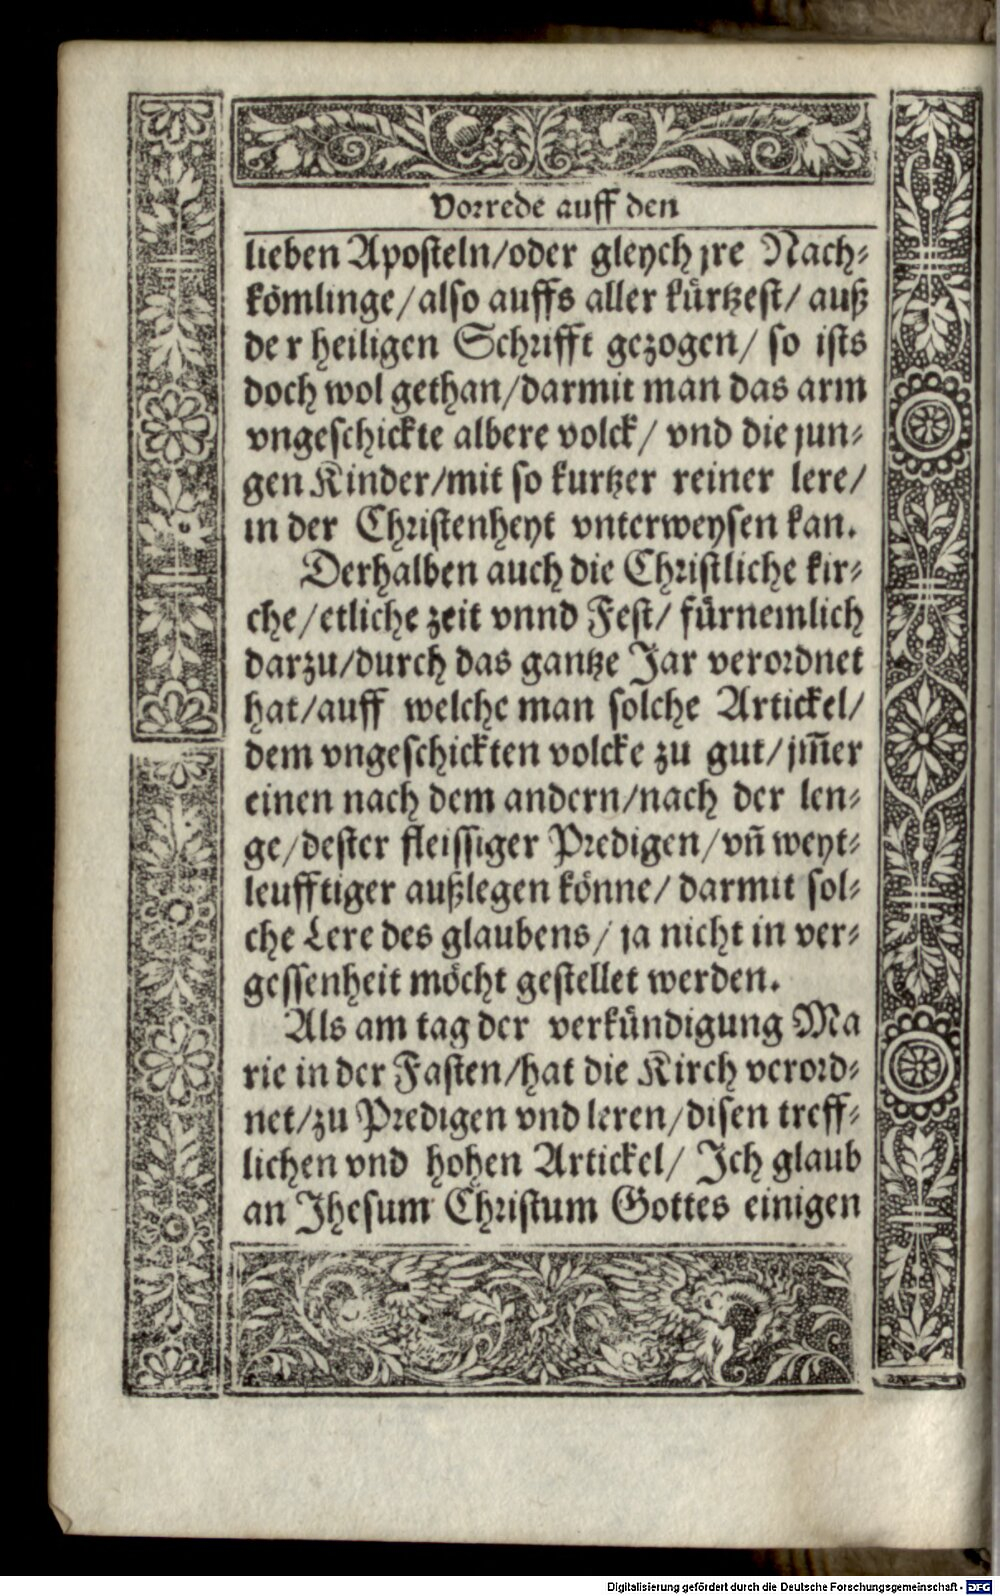 Vorrede auff den
lieben Aposteln/oder gleych jre Nach-
kömlinge/also auffs aller kürtzest/ auß
de r heiligen Schrifft gezogen/ so ists
doch wol gethan/darmit man das arm
vngeschickte albere volck/ vnd die jun-
gen Kinder/mit so kurtzer reiner lere/
in der Christenheyt vnterweysen kan.
Derhalben auch die Christliche kir-
che/etliche zeit vnnd Fest/ fürnemlich
darzu/durch das gantze Jar verordnet
hat/auff welche man solche Artickel/
dem vngeschickten volcke zu gut/jm̃er
einen nach dem andern/nach der len-
ge/dester fleissiger Predigen/vñ weyt-
leufftiger außlegen könne/ darmit sol-
che Lere des glaubens/ ja nicht in ver-
gessenheit möcht gestellet werden.
Als am tag der verkündigung Ma
rie in der Fasten/hat die Kirch verord-
net/zu Predigen vnd leren/disen treff-
lichen vnd hohen Artickel/ Jch glaub
an Jhesum Christum Gottes einigen
Digitalisierung gefördert durch die Deutsche Forschungsgemeinschaft - DFG